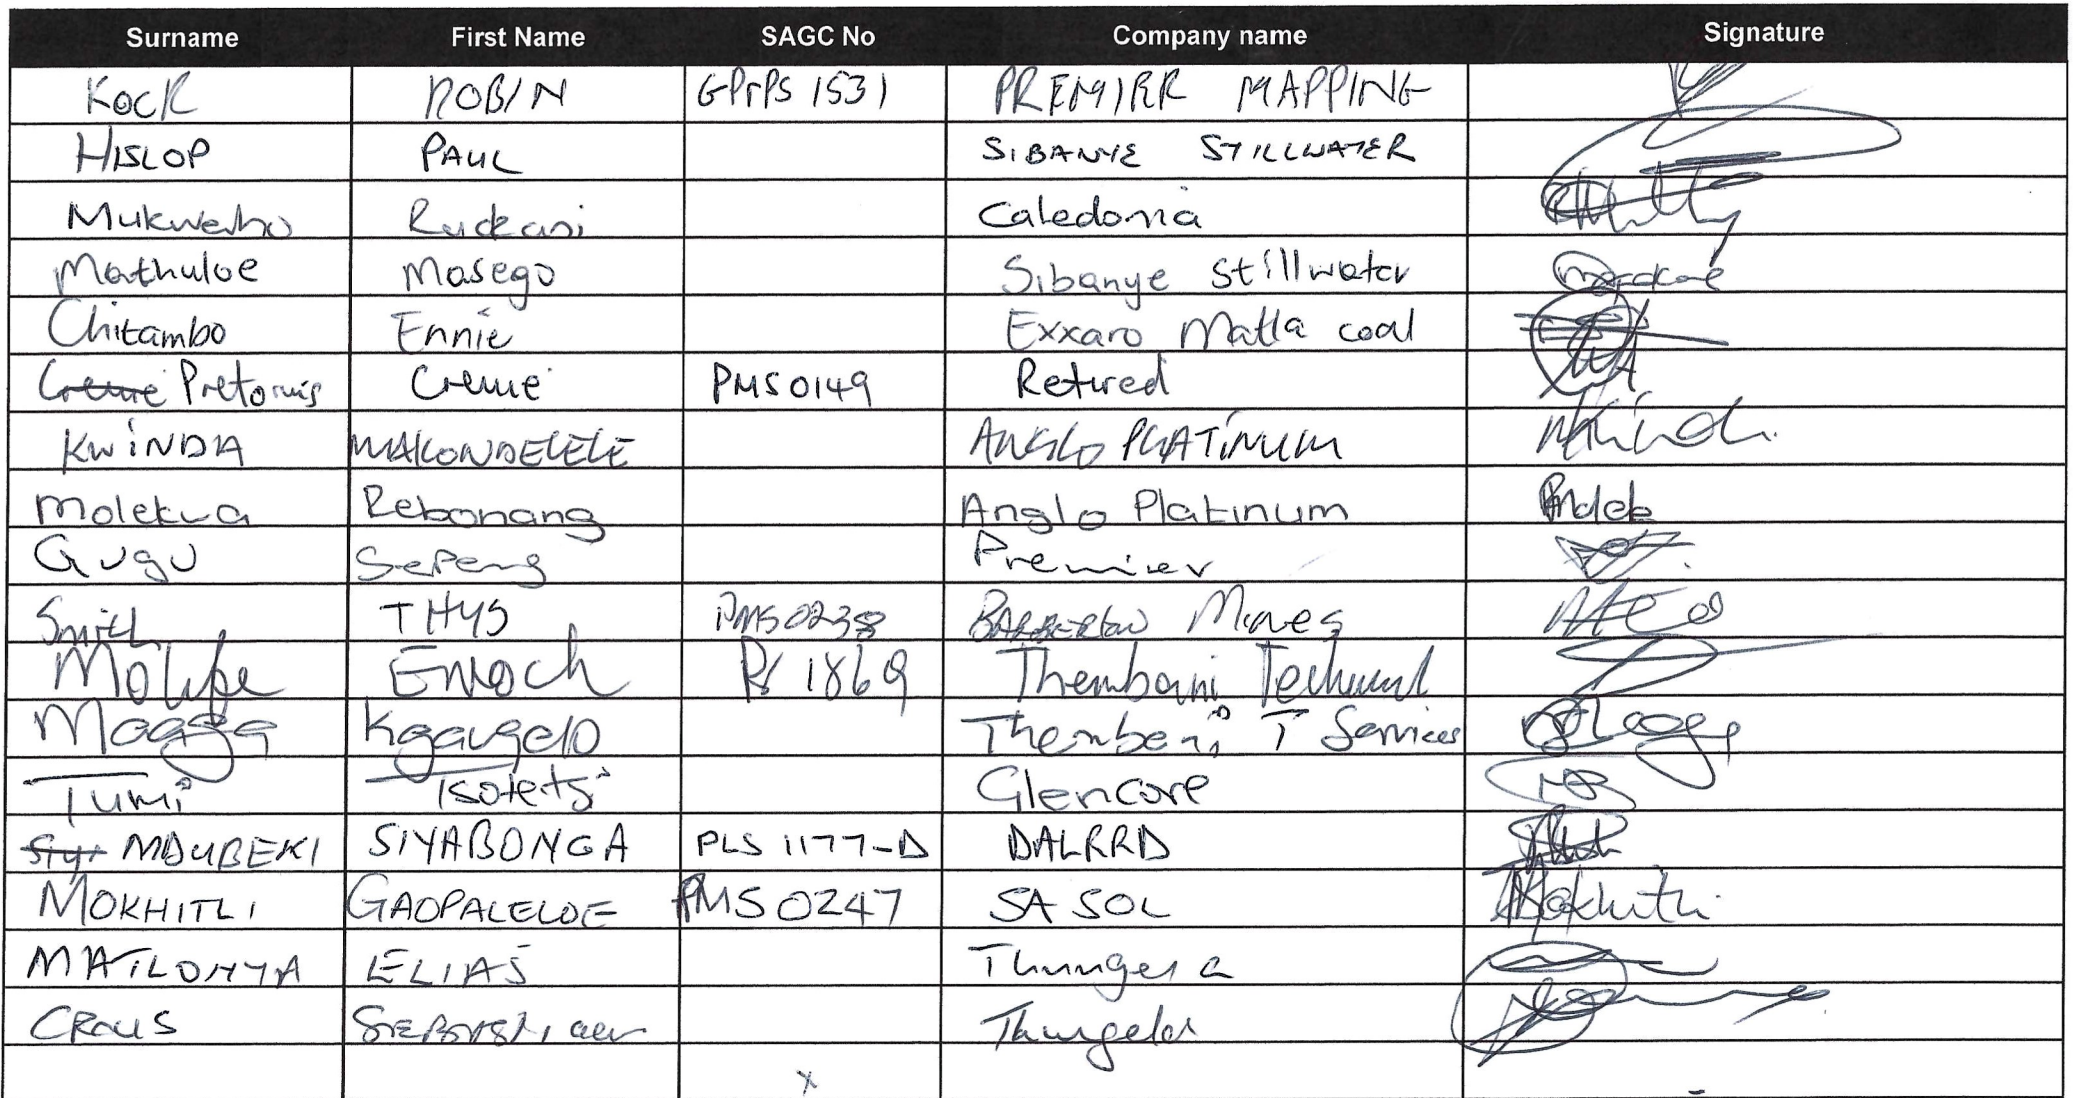 Surname First Name SAGC No Company name Signature
KOCK ROBIN GPrPS 1531 PREMIER MAPPING
HISLOP PAUL SIBANYE STILLWATER
Mukwevho Caledonia
Mathuloe Masego Sibanye Stillwater
Chitambo Ennie Exxaro Matla coal
Creme Pretorius Creme PMS0149 Retired
KWINDA MAKONDELELE ANGLO PLATINUM
Molekwa Rebonang Anglo Platinum
Gugu Sepeng Premier
Smith THYS PMS0238 BARBERTON Mines
Molife Enoch 1869 Thembani Technical
Maaga Kgaugelo Thembani T Services
Tumi Tsotetsi Glencore
Siya MDUBEKI SIYABONGA PLS 1177-D DALRRD
MOKHITLI GAOPALELOE PMS 0247 SASOL Mokhitli
MATLONYA ELIAS Thungela
CRAUS Thungela
x